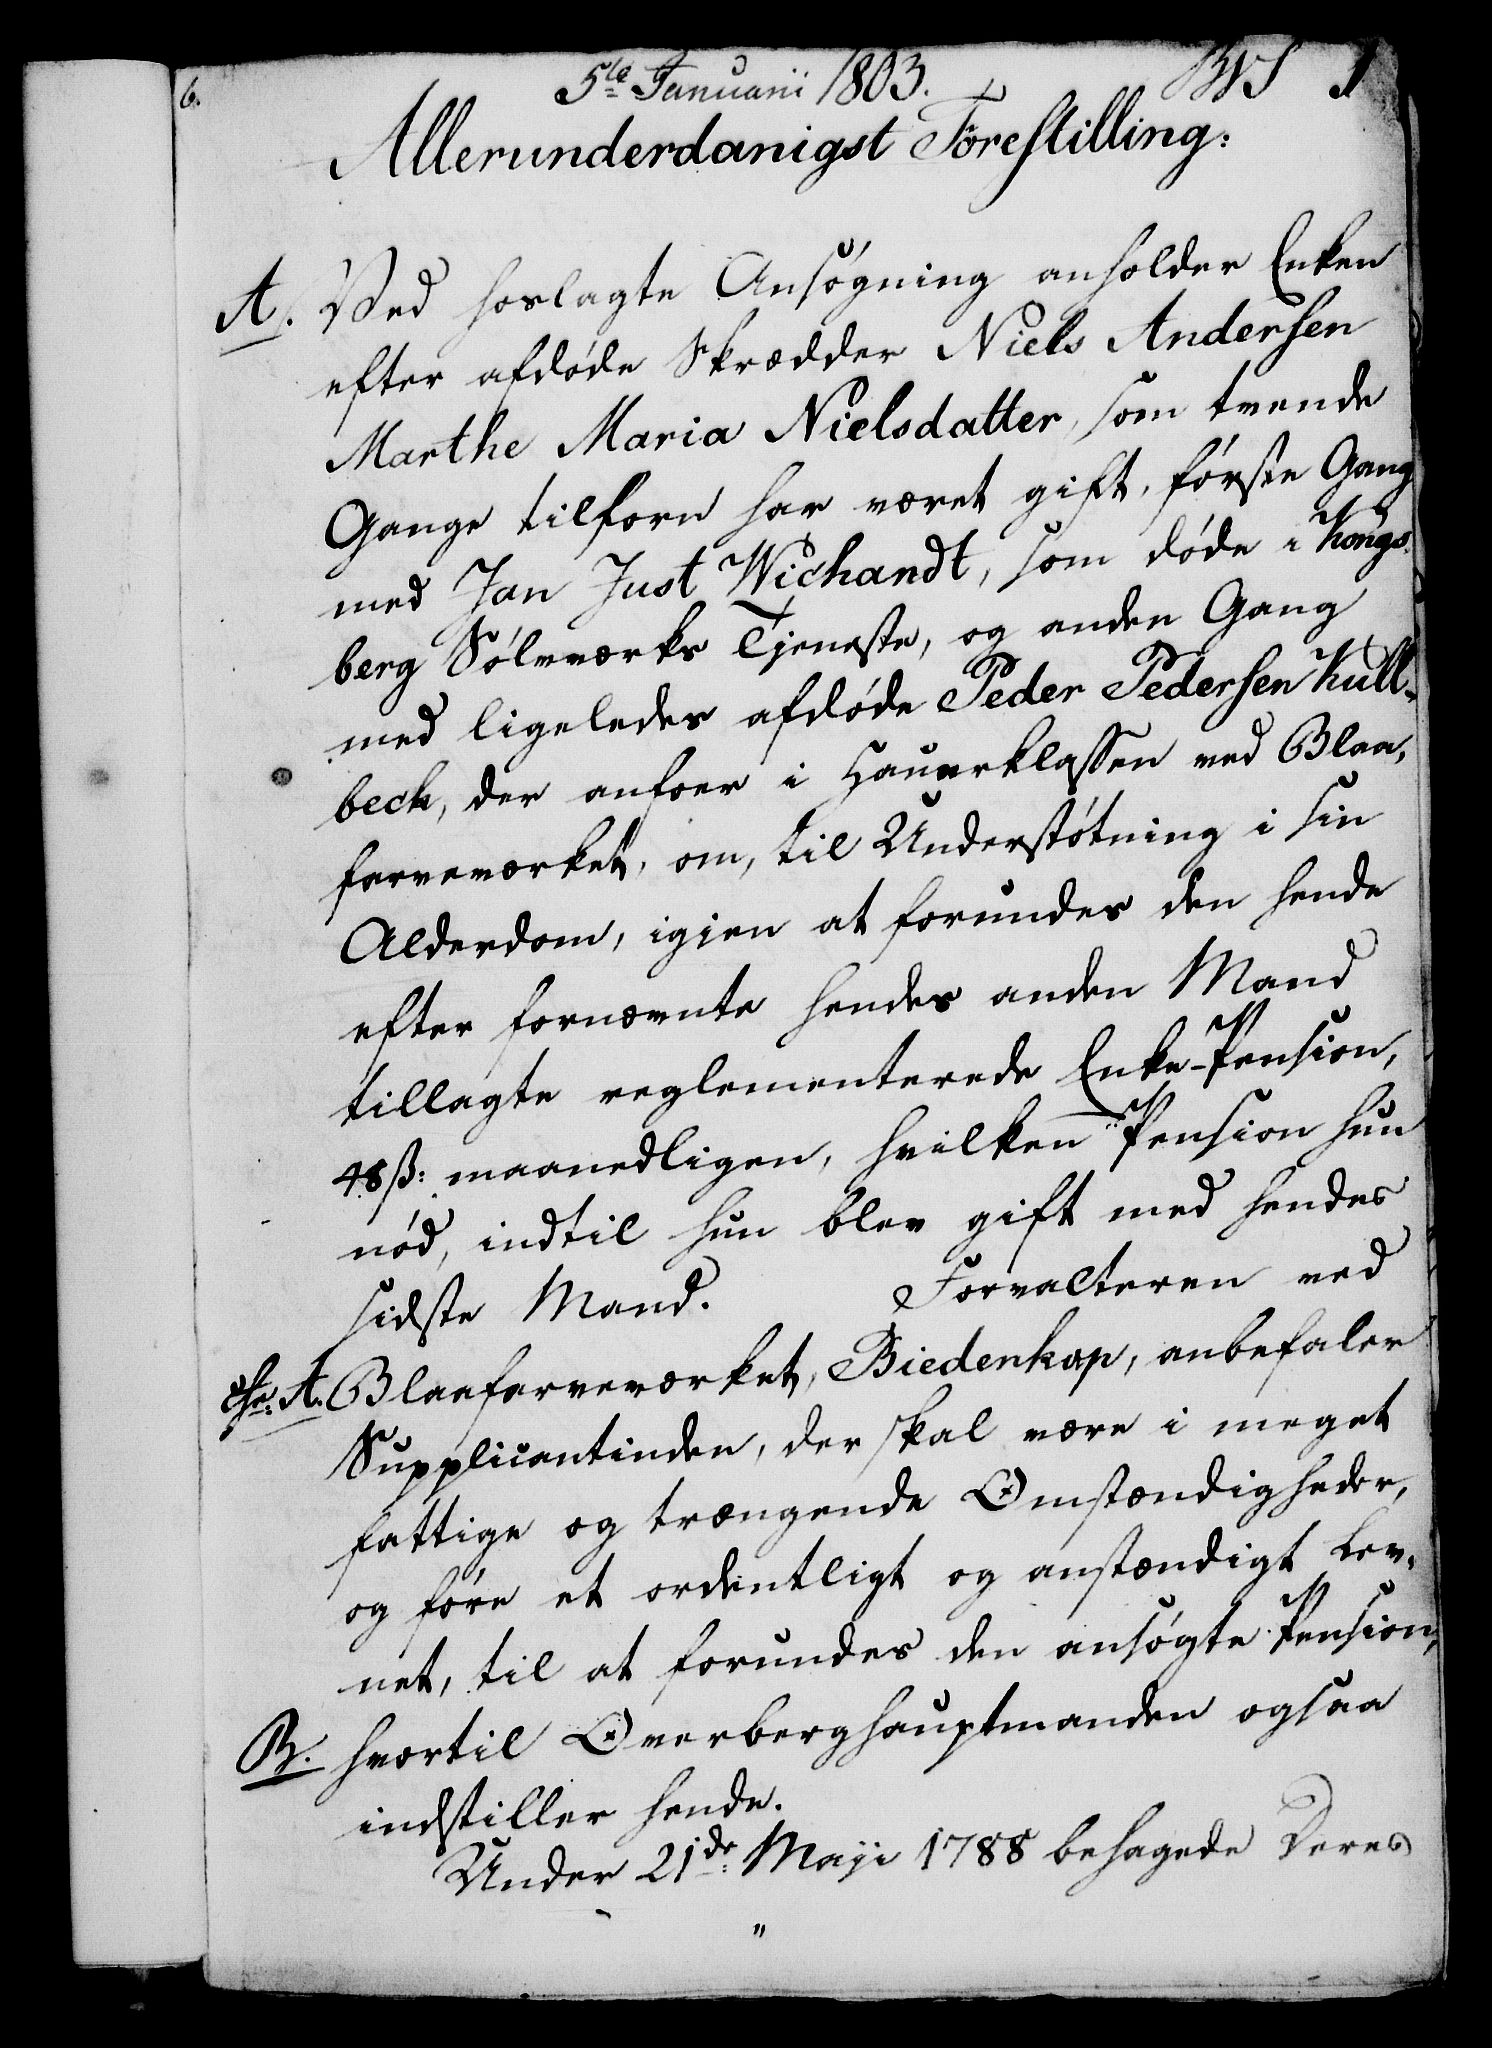 5te Januarii 1803. 1
6.
Allerunderdanigst Forestilling:
A. Ved hoslagte Ansøgning anholder Enken
efter afdøde Skrædder Niels Andersen
Marthe Maria Nielsdatter, som tvende
Gange tilforn har været gift, første Gang
med Jan Just Wichandt, som døde i Kongs-
berg Sølvværks Tjeneste, og anden Gang
med ligeledes afdøde Peder Pedersen Kull-
beck, der anfoer i Hauerklassen ved Blaa-
farveværket, om, til Understøtning i sin
Alderdom, igjen at forundes den hende
efter fornævnte hendes anden Mand
tillagte reglementerede Enke-Pension,
48 ß: maanedligen, hvilken Pension hun
nød, indtil hun blev gift med hendes
sidste Mand. Forvalteren ved
A. Blaafarveværket, Biedenkap, anbefaler
Supplicantinden, der skal være i meget
fattige og trængende Omstændigheder,
og føre et ordentligt og anstændigt Lev-
net, til at forundes den ansøgte Pension,
B. hvortil Overberghauptmanden ogsaa
indstiller hende.
Under 21de Maji 1788 behagede Deres
"